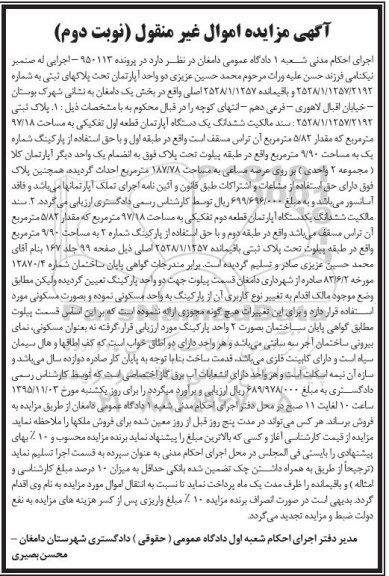 آگهی مزایده اموال غیر منقول (نوبت دوم)
اجرای احکام مدنی شعبه ۱ دادگاه عمومی دامغان در نظر دارد در پرونده ۹۵۰۱۱۳ – اجرایی له صنمبر
نیکنامی فرزند حسن علیه وراث مرحوم محمد حسین عزیزی دو واحد آپارتمان تحت پلاکهای ثبتی به شماره
۲۵۲۸/۱/۱۲۵۷/۲۱۹۲ و باقیمانده ۲۵۲۸/۱/۱۲۵۷ اصلی واقع در بخش یک دامغان به نشانی شهرک بوستان
– خیابان اقبال لاهوری – فرعی دهم – انتهای کوچه را در قبال محکوم به با مشخصات ذیل : ۱. پلاک ثبتی
۲۵۲۸/۱/۱۲۵۷/۲۱۹۲ : سند مالکیت ششدانگ یک دستگاه آپارتمان قطعه اول تفکیکی به مساحت ۹۷/۱۸
مترمربع که مقدار ۵/۸۲ مترمربع آن تراس مسقف است واقع در طبقه اول و با حق استفاده از پارکینگ شماره
یک به مساحت ۹/۹۰ مترمربع واقع در طبقه پیلوت تحت پلاک فوق به انضمام یک واحد دیگر آپارتمان کلا
( مجموعه ۲ واحدی ) بر روی عرصه مساعی به مساحت ۱۸۷/۷۸ مترمربع احداث گردیده، همچنین پلاک
فوق دارای حق استفاده از مشاعات و اشتراکات طبق قانون و آئین نامه اجرای تملک آپارتمانها می‌باشد و فاقد
آسانسور می‌باشد و به مبلغ ۶۹۹/۶۹۶/۰۰۰ ریال توسط کارشناس رسمی دادگستری ارزیابی می‌گردد. ۲. سند
مالکیت ششدانگ یکدستگاه آپارتمان قطعه دوم تفکیکی به مساحت ۹۷/۱۸ مترمربع که مقدار ۵/۸۲ مترمربع
آن تراس مسقف می‌باشد واقع در طبقه دوم و با حق استفاده از پارکینگ شماره ۲ به مساحت ۹/۹۰ مترمربع
واقع در طبقه پیلوت تحت پلاک ثبتی باقیمانده ۲۵۲۸/۱/۱۲۵۷ اصلی ذیل صفحه ۹۹ جلد ۱۶۷ بنام آقای
محمد حسین عزیزی صادر و تسلیم گردیده است. برابر مندرجات گواهی پایان ساختمان شماره ۱۲۸۷۰/۴
مورخه ۸۳/۶/۲ صادره از شهرداری دامغان قسمت پیلوت جهت دو واحد پارکینگ تعیین گردیده ولیکن مطابق
وضع موجود مالک اقدام به تغییر نوع کاربری آن از پارکینگ به واحد مسکونی نموده و بصورت مسکونی مورد
استفاده قرار دارد و برای این تغییرات هیچ گونه مجوزی ارائه ننموده است که بر این اساس قسمت پیلوت
مطابق گواهی پایان ساختمان بصورت ۲ واحد پارکینگ مورد ارزیابی قرار گرفته نه بعنوان مسکونی، نمای
بیرونی ساختمان آجر سه سانتی می‌باشد و هر واحد دارای دو اطاق خواب است که کف اطاقها و هال سیمان
سیاه است و دارای کابینت فلزی می‌باشد، قدمت ساخت بنا با توجه به پایان کار صادره دوازده سال می‌باشد و
سازه آن نیمه اسکلت است و هر واحد دارای انشعابات آب برق گاز اختصاصی است که توسط کارشناس رسمی
دادگستری به مبلغ ۶۸۹/۹۷۸/۰۰۰ ریال ارزیابی و برآورد میگردد را برای روز یکشنبه مورخ ۱۳۹۵/۱۱/۰۳
ساعت ۱۰ لغایت ۱۱ صبح در محل دفتر اجرای احکام مدنی شعبه ۱ دادگاه عمومی دامغان از طریق مزایده به
فروش برساند. هر کس می‌تواند در مدت پنج روز قبل از روز معین شده برای فروش ملکها را ملاحظه نماید.
مزایده از قیمت کارشناسی آغاز و کسی که بالاترین مبلغ را پیشنهاد نماید برنده مزایده محسوب و ۱۰ ٪ بهای
پیشنهادی را بایستی فی المجلس در محل اجرای احکام مدنی به عنوان سپرده به قسمت اجرا تسلیم نماید
(ترجیحاً از طریق به همراه داشتن چک تضمین شده بانکی حداقل به میزان ۱۰ درصد مبلغ کارشناسی و
امثاله ) و باقیمانده را ظرف مدت یک ماه پرداخت نماید تا نسبت به انتقال اموال مورد مزایده به نام وی اقدام
گردد. بدیهی است در صورت انصراف برنده مزایده ۱۰ ٪ مبلغ واریزی پس از کسر هزینه های مزایده به نفع
دولت ضبط و مزایده تجدید می‌گردد.
مدیر دفتر اجرای احکام شعبه اول دادگاه عمومی ( حقوقی ) دادگستری شهرستان دامغان –
محسن بصیری